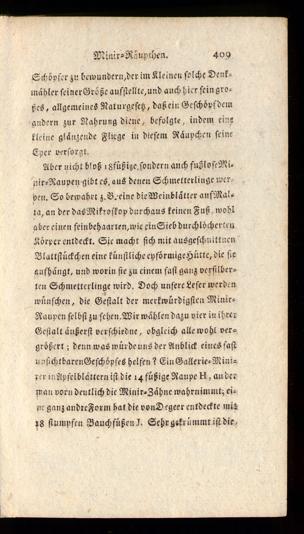 Minir-Räupchen. 409
Schöpfer zu bewundern, der im Kleinen solche Denk-
mähler seiner Größe aufstellte, und auch hier sein gro-
ßes, allgemeines Naturgesetz, daß ein Geschöpf dem
andern zur Nahrung diene, befolgte, indem eine
kleine glänzende Fliege in diesem Räupchen seine
Eyer versorgt.
Aber nicht bloß 18füßige, sondern auch fußlose Mi-
nir-Raupen gibt es, aus denen Schmetterlinge wer-
den. So bewahrt z. B. eine die Weinblätter auf Mal-
ta, an der das Mikroskop durchaus keinen Fuß, wohl
aber einen seinbehaarten, wie ein Sieb durchlöcherten
Körper entdeckt. Sie macht sich mit ausgeschnittnen
Blattstückchen eine künstliche eyförmige Hütte, die sie
aufhängt, und worin sie zu einem fast ganz versilber-
ten Schmetterlinge wird. Doch unsere Leser werden
wünschen, die Gestalt der merkwürdigsten Minir-
Raupen selbst zu sehen. Wir wählen dazu vier in ihrer
Gestalt äußerst verschiedne, obgleich alle wohl ver-
größert; denn was würde uns der Anblick eines fast
unsichtbaren Geschöpfes helfen? Ein Gallerie-Mini-
rer in Apfelblättern ist die 14 füßige Raupe H, an der
man vorn deutlich die Minir-Zähne wahrnimmt; ei-
ne ganz andre Form hat die von Degeer entdeckte mit
18 stumpfen Bauchfüßen J. Sehr gekrümmt ist die,